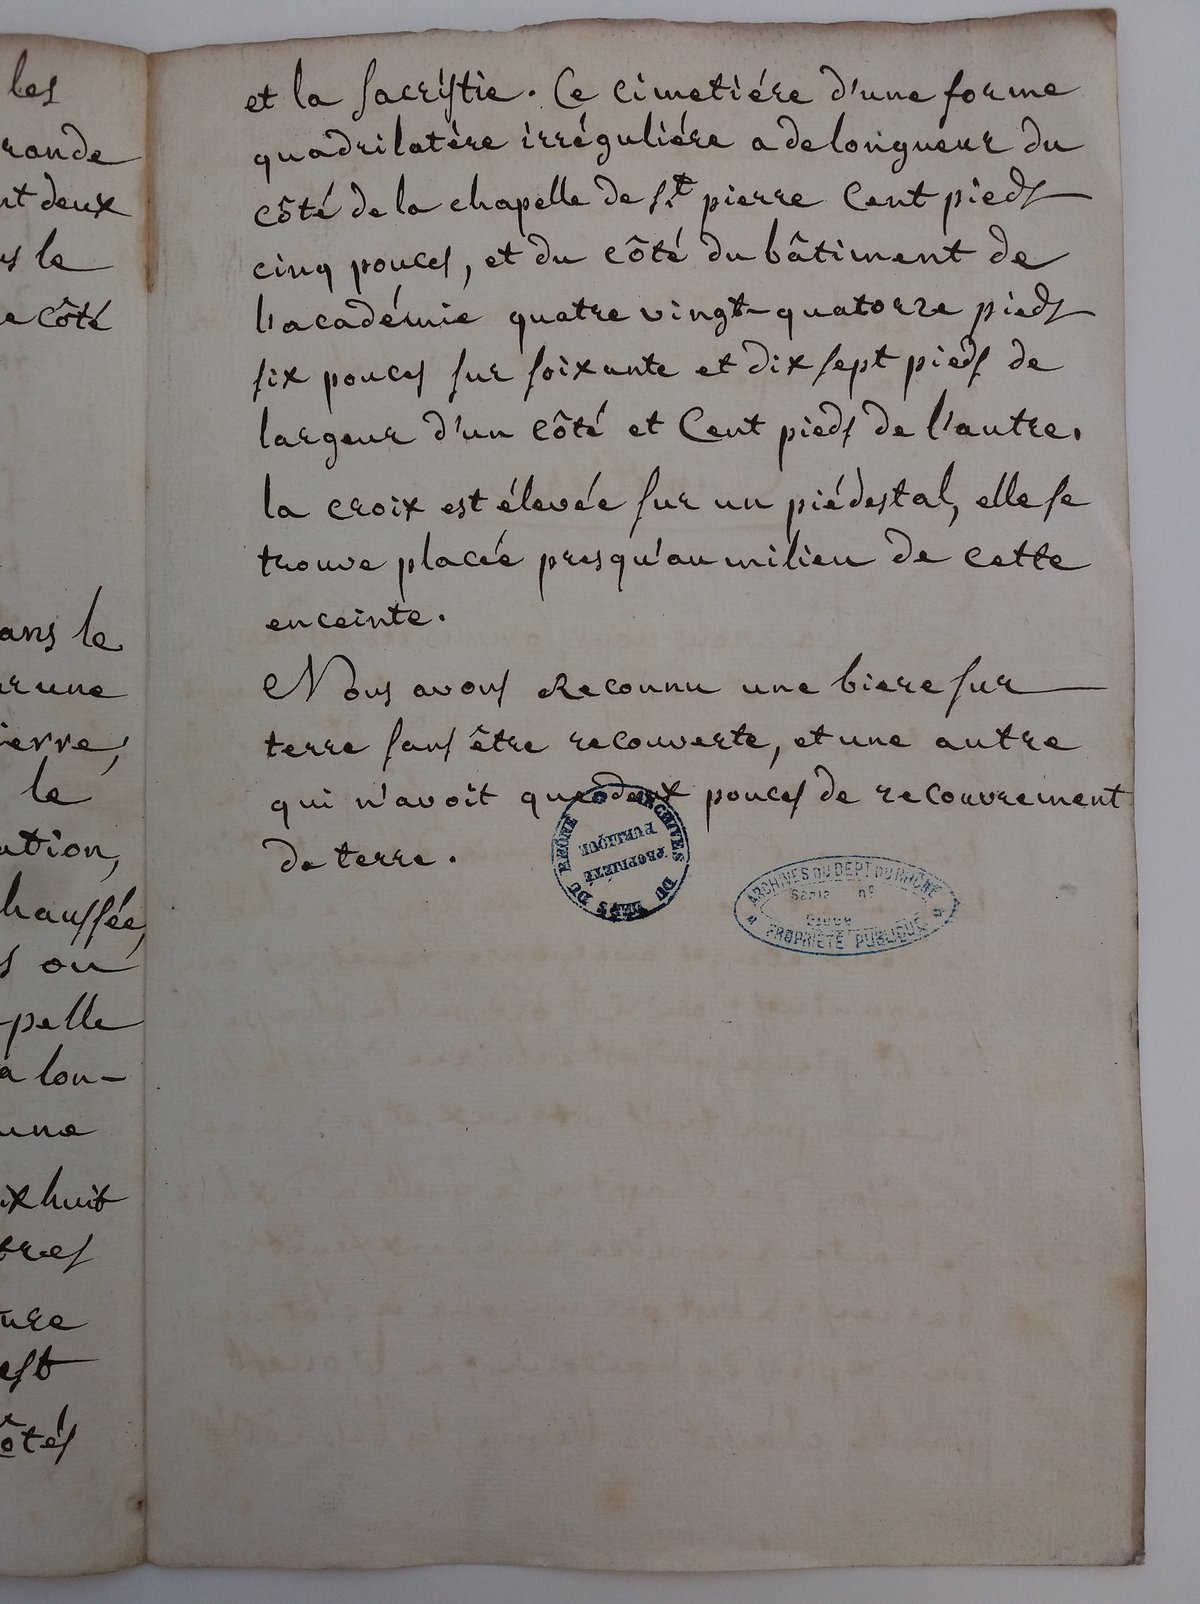 les
rande
nt deux
s le
e côté
ans le
r une
ierre,
le
ation,
hauſſée,
s ou
pelle
a lon-
une
ix huit
tres
ure
eſt
ôtés
et la ſacriſtie. Ce cimetiére d'une forme
quadrilatère irréguliére a de longueur du
côté de la chapelle de St. pierre Cent pieds
cinq pouces, et du côté du bâtiment de
l'académie quatre vingt-quatorze pieds
ſix pouces ſur ſoixante et dix ſept pieds de
largeur d'un côté et Cent pieds de l'autre.
la croix est élevée ſur un piédestal, elle ſe
trouve placée presqu'au milieu de cette
enceinte.
Nous avons Reconnu une biere ſur
terre ſans être recouverte, et une autre
qui n'avoit que deux pouces de recouvrement
de terre.
ARCHIVES DU DEPT DU RHÔNE
PROPRIÉTÉ
PUBLIQUE
ARCHIVES DU DEPT DU RHÔNE
Série no
PROPRIÉTÉ PUBLIQUE